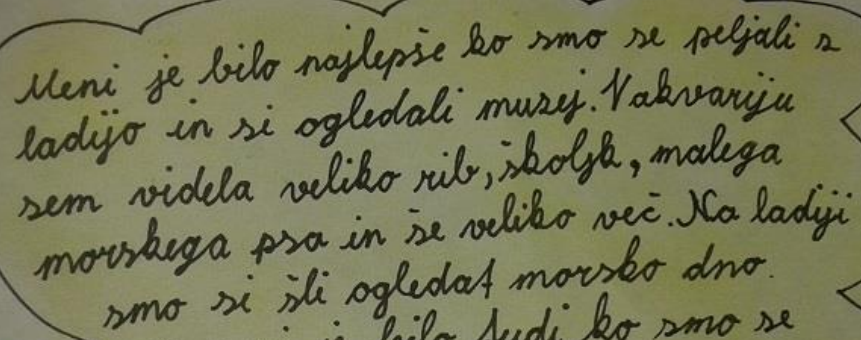 Meni je bilo najlepše ko smo se peljali z
ladijo in si ogledali muzej. Vakvariju
sem videla veliko rib, školjk, malega
morskega psa in še veliko več. Na ladiji
smo si šli ogledat morsko dno.
je bilo tudi ko smo se